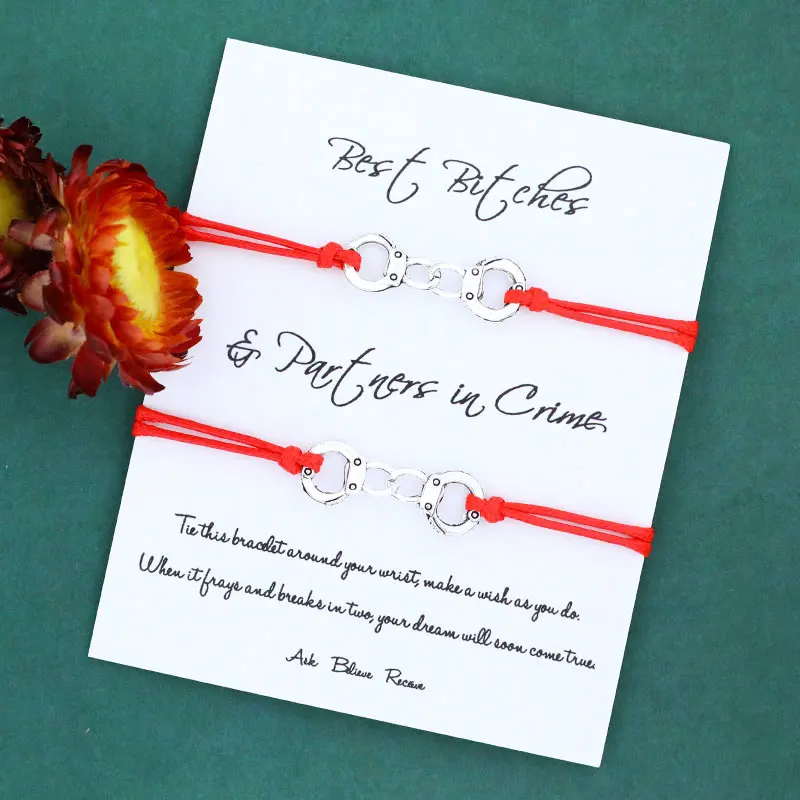 Best Bitches
& Partners in Crime
Tie this bracelet around your wrist, make a wish as you do.
When it frays and breaks in two, your dream will soon come true.
Ask Believe Receive